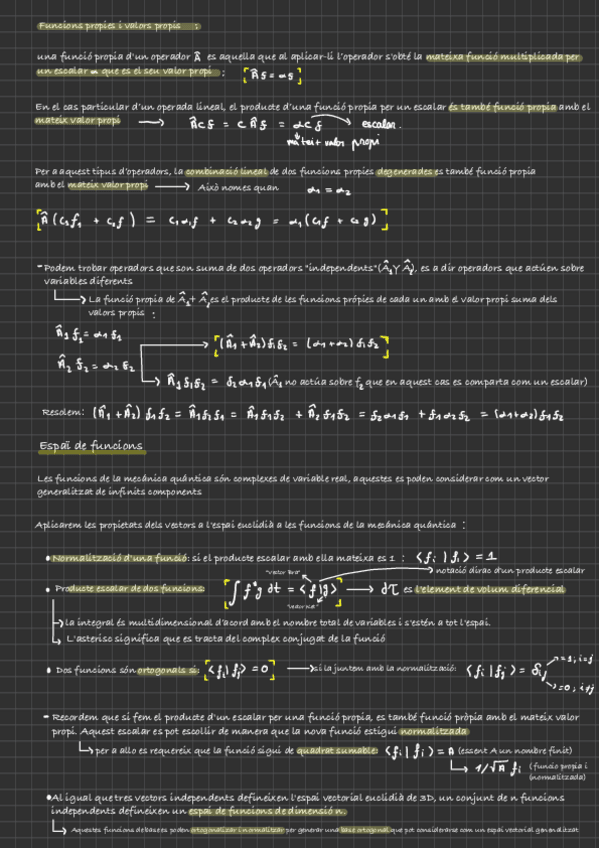 Funcions propies i valors propis :
una funció propia d'un operador Â es aquella que al aplicar-li l'operador s'obté la mateixa funció multiplicada per
un escalar α que es el seu valor propi : [Âf = αf]
En el cas particular d'un operada lineal, el producte d'una funció propia per un escalar és també funció propia amb el
mateix valor propi → Âcf = cÂf = αcf → escalar.
mateix valor propi
Per a aquest tipus d'operadors, la combinació lineal de dos funcions propies degenerades es també funció propia
amb el mateix valor propi → Això nomes quan α₁ = α₂
[Â(c₁f₁ + c₂f) = c₁α₁f + c₂α₂g = α₁(c₁f + c₂g)]
- Podem trobar operadors que son suma de dos operadors "independents" (Â₁ Y Â₂), es a dir operadors que actúen sobre
variables diferents
La funció propia de Â₁ + Â₂ es el producte de les funcions própies de cada un amb el valor propi suma dels
valors propis :
Â₁f₁ = α₁f₁
[(Â₁ + Â₂)f₁f₂ = (α₁+α₂)f₁f₂]
Â₂f₂ = α₂f₂
Â₁f₁f₂ = f₂α₁f₁ (Â₁ no actúa sobre f₂ que en aquest cas es comparta com un escalar)
Resolem: (Â₁ + Â₂)f₁f₂ = Â₁f₂f₁ = Â₁f₁f₂ + Â₂f₁f₂ = f₂α₁f₁ + f₁α₂f₂ = (α₁+α₂)f₁f₂
Espaï de funcions
Les funcions de la mecánica quántica són complexes de variable real, aquestes es poden considerar com un vector
generalitzat de infinits components
Aplicarem les propietats dels vectors a l'espai euclidià a les funcions de la mecánica quántica :
• Normalització d'una funció: si el producte escalar amb ella mateixa es 1 : ⟨fᵢ|fᵢ⟩ = 1
notació dirac d'un producte escalar
"vector Bra"
• Producte escalar de dos funcions: [∫f*g dτ = ⟨f|g⟩] → dτ es l'element de volum diferencial
"vector Ket"
la integral és multidimensional d'acord amb el nombre total de variables i s'estén a tot l'espai.
L'asterisc significa que es tracta del complex conjugat de la funció
• Dos funcions són ortogonals si: [⟨fᵢ|fⱼ⟩ = 0] → si la juntem amb la normalització: ⟨fᵢ|fⱼ⟩ = δᵢⱼ
=1; i=j
=0; i≠j
- Recordem que si fem el producte d'un escalar per una funció propia, es també funció pròpia amb el mateix valor
propi. Aquest escalar es pot escollir de manera que la nova funció estigui normalitzada
per a allo es requereix que la funció sigui de quadrat sumable: ⟨fᵢ|fᵢ⟩ = A (essent A un nombre finit)
1/√A fᵢ (funcio propia i
(normalitzada)
• Al igual que tres vectors independents defineixen l'espai vectorial euclidià de 3D, un conjunt de n funcions
independents defineixen un espai de funcions de dimensió n.
Aquestes funcions de base es poden ortogonalizar i normalitzar per generar una base ortogonal que pot considerarse com un espai vectorial generalitzat